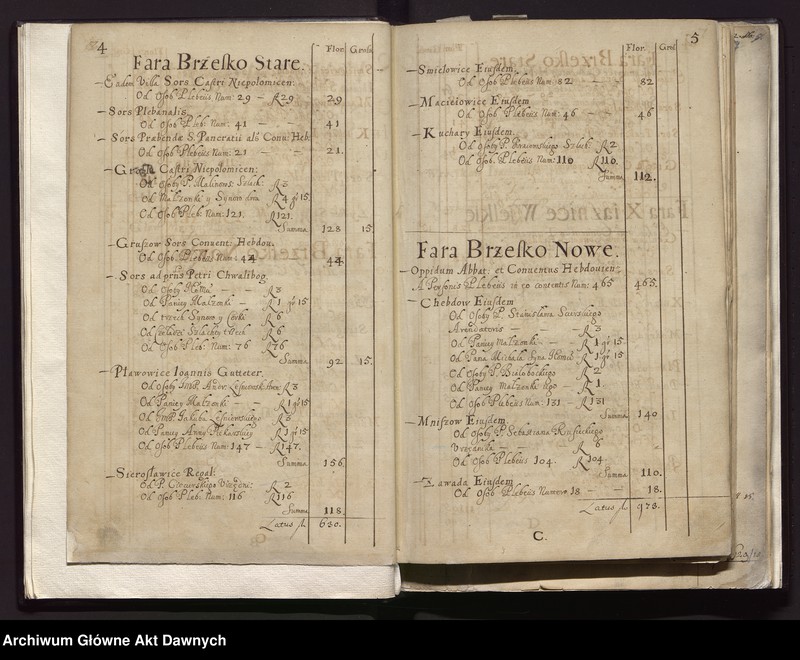 4
Flor. Grosi
Fara Brzesko Stare.
– Eadem Villa Sors Castri Niepolomicen:
Od Osob Plebeis Num: 29 – R 29 29
– Sors Plebanalis
Od Osob Plebe: Num: 41 – – 41
– Sors Præbendæ S. Pancratii als Conu: Heb:
Od Osob Plebeis Num: 21 – – 21.
– Castri Niepolomicen:
Od Osoby P. Malinows: R 3
Od Malzonki y Synow dwu R 4 gr 15
Od Osob Pleb: Num: 121. R 121.
Summa 128 15.
– Gruszow Sors Conuent: Hebdou.
Od Osob Plebeis Num: 44 44
– Sors ad præns Petri Chwalibog.
Od Osoby – R 3
Od Paniey Malzonki – R 1 gr 15
Od trzech Synow y Corki R 6
Od Szlachty R 6
Od Osob Pleb: Num: 76 R 76
Summa 92 15.
– Plawowice Ioannis Gutteter.
Od Osoby IMP. Andr. R 3
Od Paniey Malzonki – R 1 gr 15
Od IMP. Jakuba R 3
Od Paniey Anny R 1 gr 15
Od Osob Plebeis Num: 147 – R 147.
Summa 156.
– Sierosławice Regal:
Od P. R 2
Od Osob Pleb: Num: 116 R 116
Summa 118
Latus fl. 630.
5
Flor. Gros
– Smielowice Eiusdem.
Od Osob Plebeis Num: 82 – – 82
– Macieiowice Eiusdem
Od Osob Plebeis Num: 46 – – 46
– Kuchary Eiusdem.
Od Osoby P. Szlach: R 2
Od Osob. Plebeis Num: 110 R 110.
Summa 112.
Fara Brzesko Nowe.
– Oppidum Abbat: et Conuentus Hebdouien:
A Personis Plebeis in eo contentis Num: 465 465.
– Chebdow Eiusdem
Od Osoby P. Stanislawa
Arendatoris – R 3
Od Paniey Malzonki – R 1 gr 15.
Od Pana Michala Syna R 1 gr 15
Od Osoby P. Bialobockiego R 2
Od Paniey Malzonki tego – R 1.
Od Osob Plebeis Num: 131 – R 131
Summa 140
– Mniszow Eiusdem
Od Osoby P. Sebastiana
– R 6
Od Osob Plebeis 104. R 104.
Summa 110.
– Zawada Eiusdem
Od Osob Plebeis Numero 18 – – 18.
Latus fl. 973.
C.
Archiwum Główne Akt Dawnych